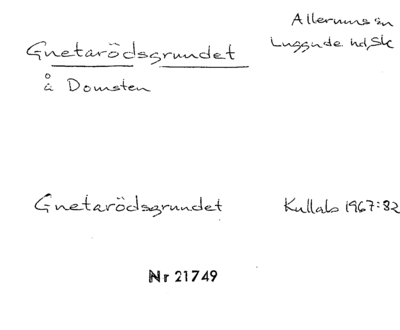 Allerums sn
Gnetarödsgrundet Luggude hd, Sk
å Domsten
Gnetarödsgrundet Kullab 1967:82
Nr 21749